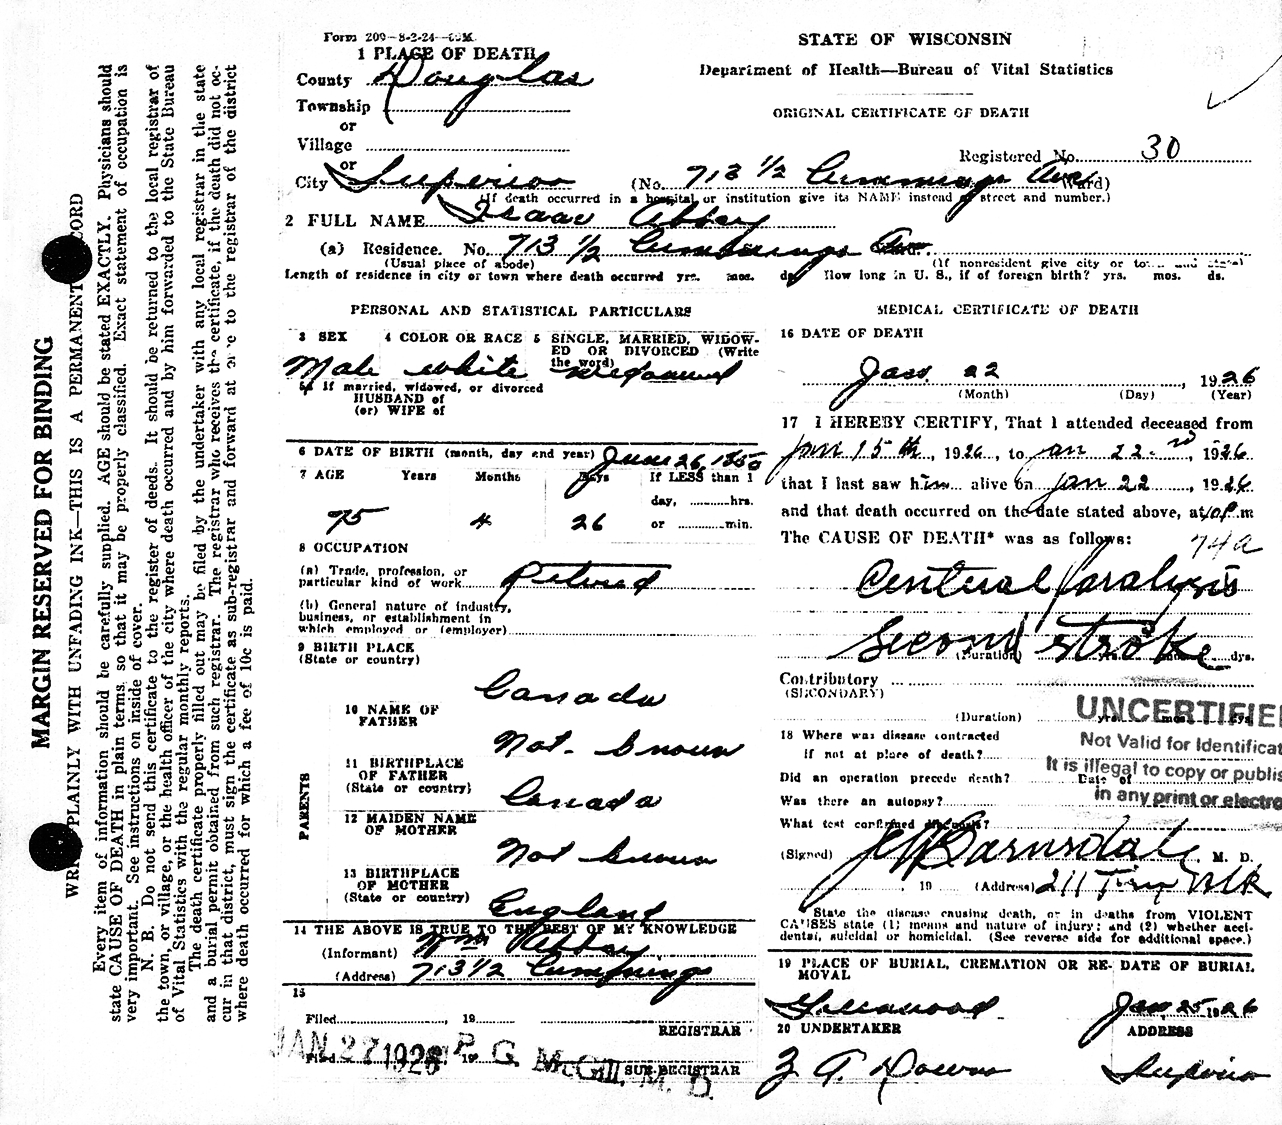 MARGIN RESERVED FOR BINDING
PLAINLY WITH UNFADING INK—THIS IS A PERMANENT RECORD
Every item of information should be carefully supplied. AGE should be stated EXACTLY. Physicians should
state CAUSE OF DEATH in plain terms, so that it may be properly classified. Exact statement of occupation is
very important. See instructions on inside of cover.
N. B. Do not send this certificate to the register of deeds. It should be returned to the local registrar of
the town, or village, or the health officer of the city where death occurred and by him forwarded to the State Bureau
of Vital Statistics with the regular monthly reports.
The death certificate properly filled out may be filed by the undertaker with any local registrar in the state
and a burial permit obtained from such registrar. The registrar who receives the certificate, if the death did not oc-
cur in that district, must sign the certificate as sub-registrar and forward at once to the registrar of the district
where death occurred for which a fee of 10c is paid.
Form 209—8-2-24
STATE OF WISCONSIN
Department of Health—Bureau of Vital Statistics
ORIGINAL CERTIFICATE OF DEATH
1 PLACE OF DEATH
County Douglas
Township
or
Village
or
Registered No. 30
City Superior (No. 713 1/2 Cummings Ave Ward)
(If death occurred in a hospital or institution give its NAME instead of street and number.)
2 FULL NAME Isaac Abbay
(a) Residence. No. 713 1/2 Cummings Ave.
(Usual place of abode) (If nonresident give city or town and state)
Length of residence in city or town where death occurred yrs. mos. ds. How long in U. S., if of foreign birth? yrs. mos. ds.
PERSONAL AND STATISTICAL PARTICULARS
3 SEX 4 COLOR OR RACE 5 SINGLE, MARRIED, WIDOW-
ED OR DIVORCED (Write
the word)
Male white widowed
5a If married, widowed, or divorced
HUSBAND of
(or) WIFE of
6 DATE OF BIRTH (month, day and year) June 26, 1850
7 AGE Years Months Days If LESS than 1
day, hrs.
or min.
75 4 26
8 OCCUPATION
(a) Trade, profession, or
particular kind of work Retired
(b) General nature of industry,
business, or establishment in
which employed or (employer)
9 BIRTH PLACE
(State or country)
Canada
PARENTS
10 NAME OF
FATHER
Not known
11 BIRTHPLACE
OF FATHER
(State or country)
Canada
12 MAIDEN NAME
OF MOTHER
Not known
13 BIRTHPLACE
OF MOTHER
(State or country)
England
14 THE ABOVE IS TRUE TO THE BEST OF MY KNOWLEDGE
(Informant) Wm Abbay
(Address) 713 1/2 Cummings
15
Filed 19
REGISTRAR
Filed 19
JAN 27 1926 P. G. McGill, M. D.
SUB-REGISTRAR
MEDICAL CERTIFICATE OF DEATH
16 DATE OF DEATH
Jan. 22, 1926
(Month) (Day) (Year)
17 I HEREBY CERTIFY, That I attended deceased from
Jan 15th, 1926, to Jan 22nd, 1926
that I last saw him alive on Jan 22, 1926
and that death occurred on the date stated above, at m
The CAUSE OF DEATH* was as follows:
74a
Central Paralysis
Second stroke
(Duration) yrs. mos. dys.
Contributory
(SECONDARY)
(Duration) yrs. mos. dys.
UNCERTIFIE
Not Valid for Identificat
It is illegal to copy or publis
in any print or electro
18 Where was disease contracted
if not at place of death?
Did an operation precede death? Date of
Was there an autopsy?
What test confirmed diagnosis?
(Signed) Barnsdale M. D.
19 (Address) 211 Blk
*State the disease causing death, or in deaths from VIOLENT
CAUSES state (1) means and nature of injury; and (2) whether acci-
dental, suicidal or homicidal. (See reverse side for additional space.)
19 PLACE OF BURIAL, CREMATION OR RE-
MOVAL
DATE OF BURIAL
Greenwood Jan. 25 1926
20 UNDERTAKER ADDRESS
Downs Superior